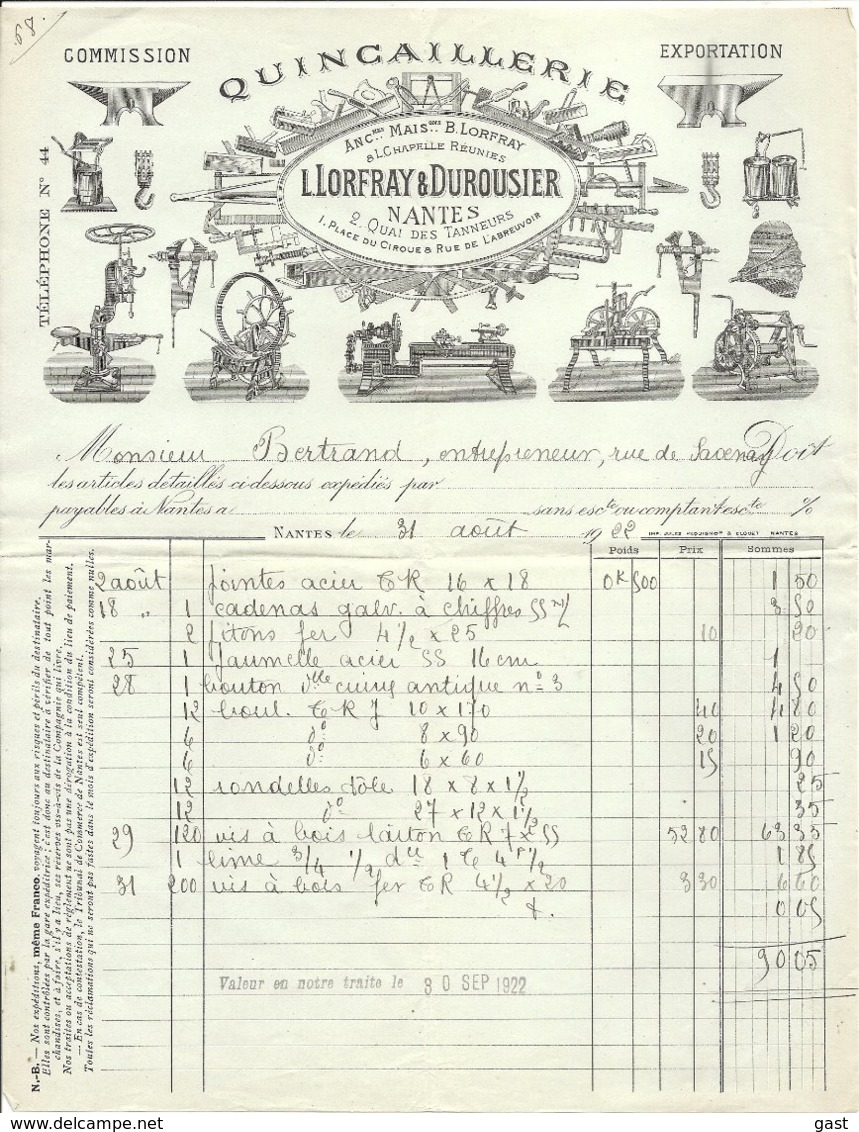 58.
COMMISSION
EXPORTATION
QUINCAILLERIE
TÉLÉPHONE N° 44
ANC.NES MAIS.ONS B. LORFRAY
& L. CHAPELLE RÉUNIES
L. LORFRAY & DUROUSIER
NANTES
2. QUAI DES TANNEURS
1. PLACE DU CIRQUE & RUE DE L'ABREUVOIR
Monsieur Bertrand, entrepreneur, rue de Savenay Doit
les articles détaillés ci-dessous expédiés par
payables à Nantes a sans escte ou comptant escte %
NANTES le 31 août 1922
NANTES
Poids Prix Sommes
2 août pointes acier TR 16 x 18 0K 500 1 50
18 " 1 cadenas galv. à chiffres 3 50
2 pitons fer 4 1/2 x 25 10 20
25 1 paumelle acier 16 cm 1
28 1 bouton dble cuivre antique n° 3 4 50
12 boul. TRJ 10 x 170 40 4 80
6 d° 8 x 90 20 1 20
6 d° 6 x 60 15 90
12 rondelles tôle 18 x 8 x 1 1/2 25
12 d° 27 x 12 x 1 1/2 35
29 120 vis à bois laiton TR 7 x 55 52 80 63 35
1 lime 3/4 1/2 1 85
31 200 vis à bois fer TR 4 1/2 x 20 3 30 6 60
t. 0 05
90 05
Valeur en notre traite le 30 SEP 1922
N.-B. — Nos expéditions, même Franco, voyagent toujours aux risques et périls du destinataire.
Elles sont contrôlées par la gare expéditrice ; c'est donc au destinataire à vérifier de tout point les mar-
chandises, et à faire, s'il y a lieu, ses réserves vis-à-vis de la Compagnie qui livre.
Nos traites ou acceptations de règlement ne sont pas une dérogation à la condition du lieu de paiement.
— En cas de contestation, le Tribunal de Commerce de Nantes est seul compétent.
Toutes les réclamations qui ne seront pas faites dans le mois d'expédition seront considérées comme nulles.
www.delcampe.net
gast